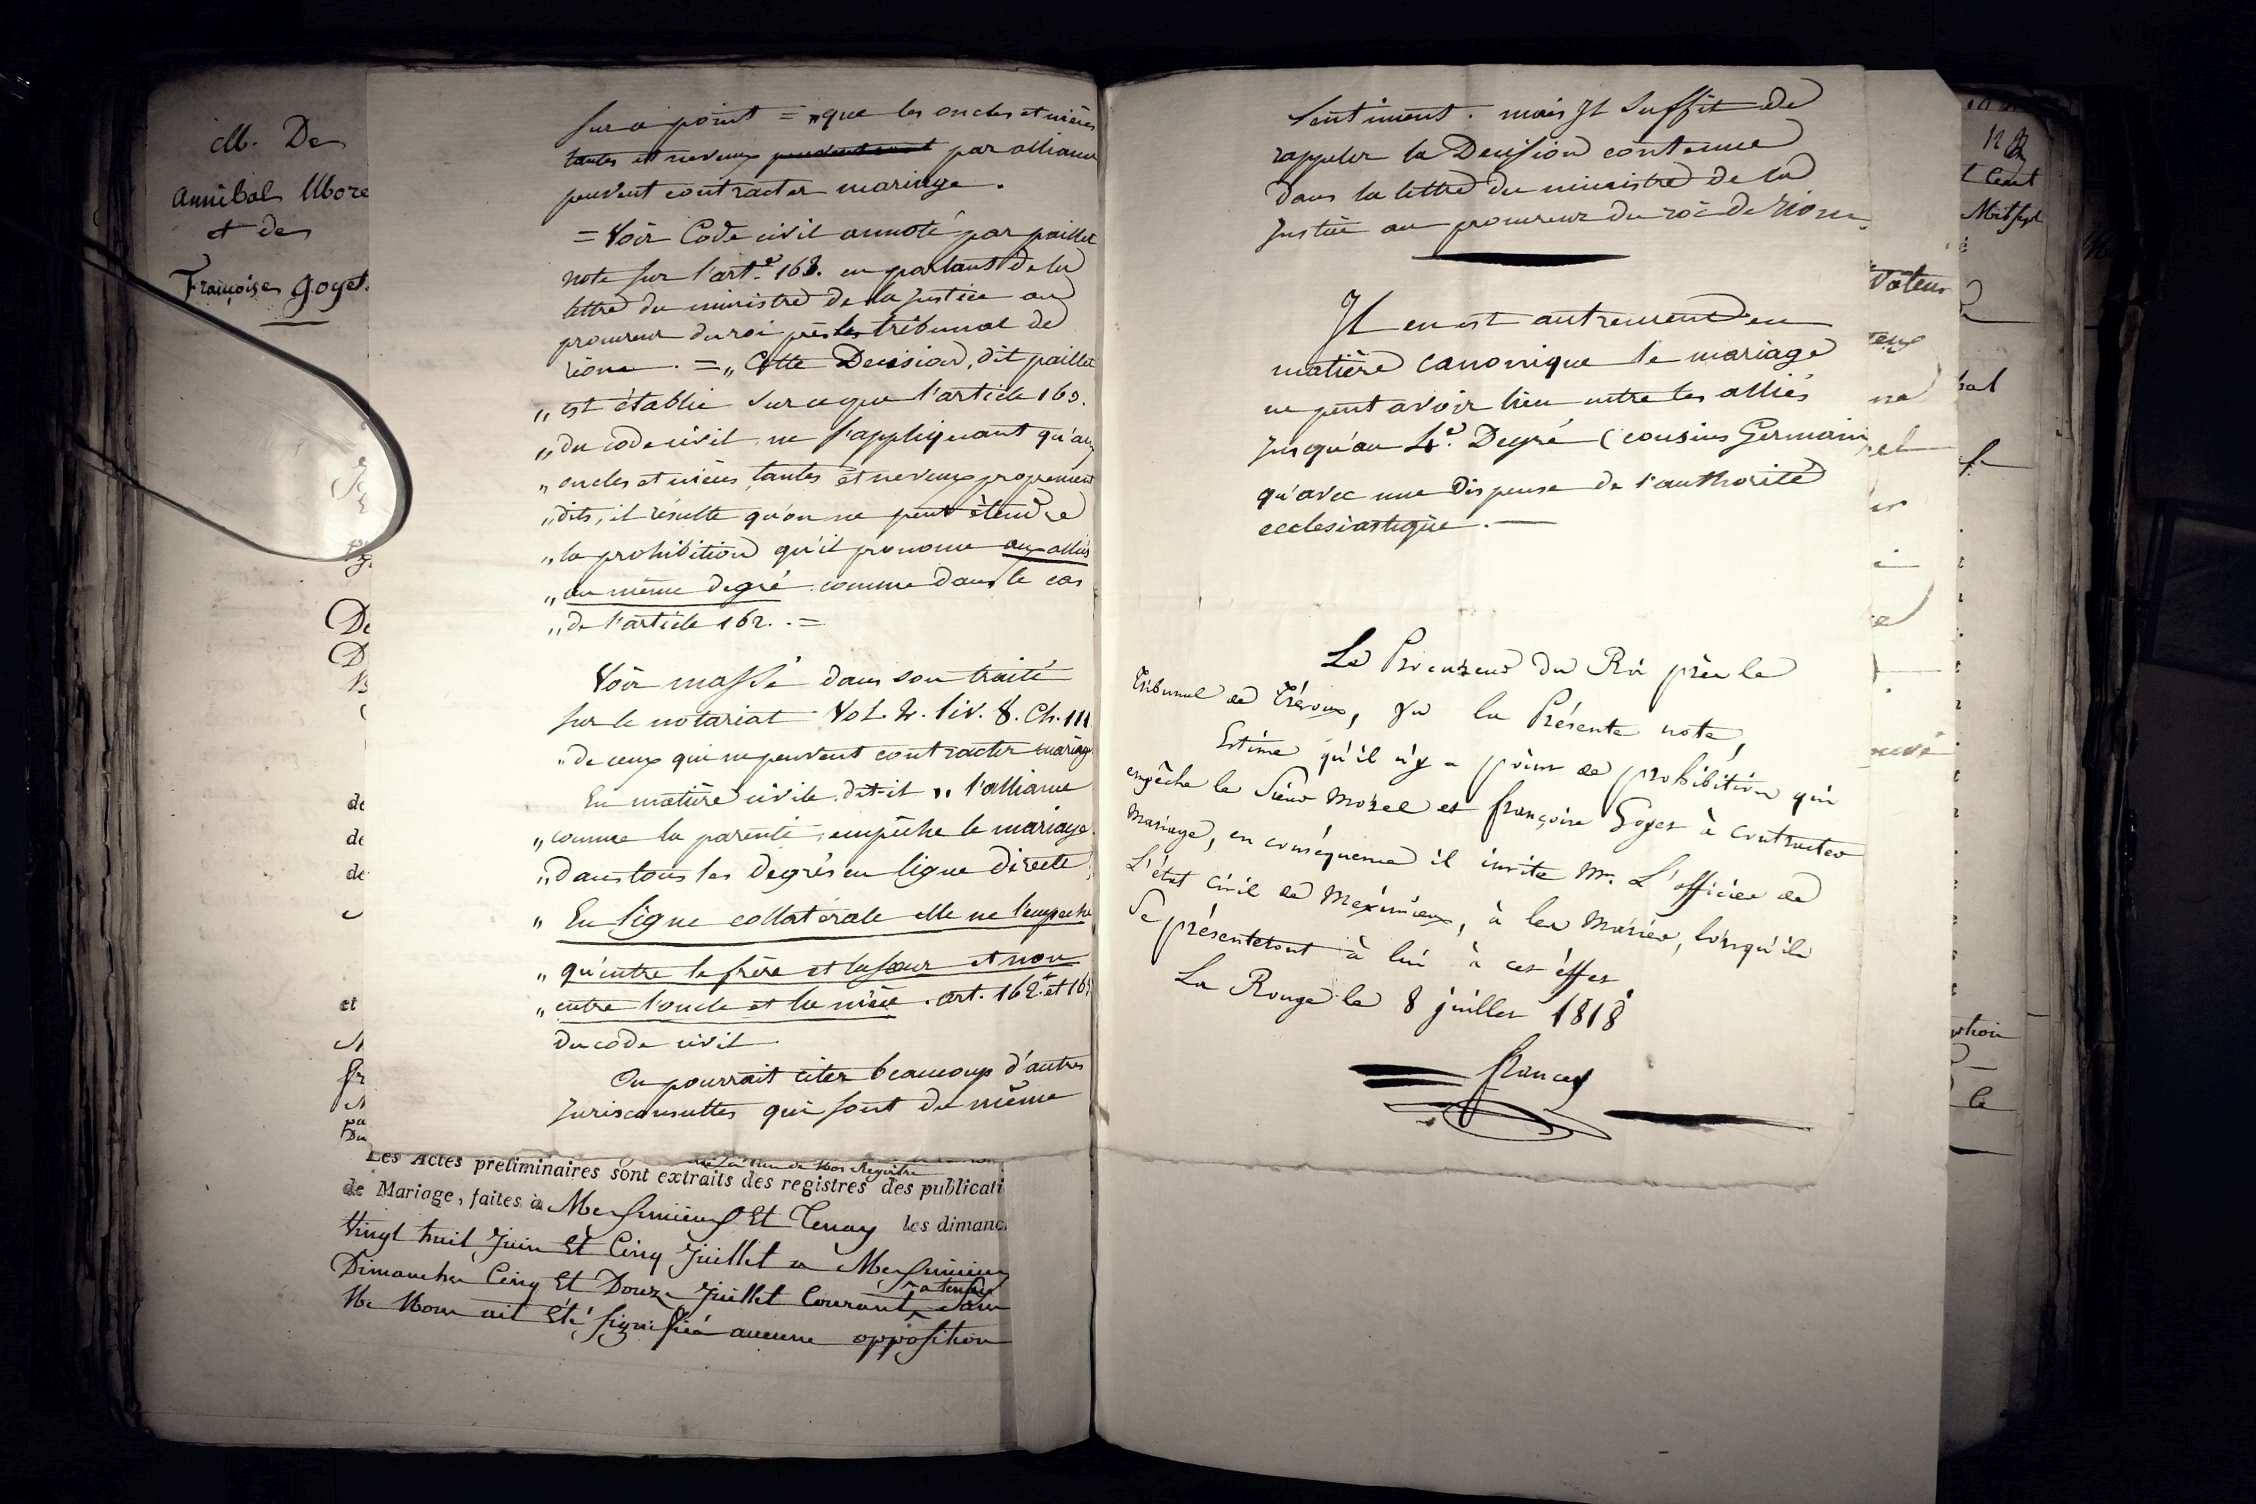 M. De
Annibal More
et de
Françoise Goyet.
sur ce point = „ que les oncles et nièces
tantes et neveux par alliance
peuvent contracter mariage.
= Voir Code civil annoté par paillet
note sur l'art.e 163. en parlant de la
lettre du ministre de la Justice au
procureur du roi près le tribunal de
riom. = „ Cette Decision, dit paillet
„ est établie sur ce que l'article 163.
„ du code civil ne s'appliquant qu'aux
„ oncles et nièces, tantes et neveux proprement
„ dits, il résulte qu'on ne peut étendre
„ la prohibition qu'il prononce aux alliés
„ au même degré comme dans le cas
„ de l'article 162. =
Voir massé dans son traité
sur le notariat Vol. 2. liv. 8. Ch. III
„ de ceux qui ne peuvent contracter mariage
En matière civile dit-il „ l'alliance
„ comme la parenté, empêche le mariage
„ Dans tous les degrés en ligne directe,
„ En ligne collatérale elle ne l'empeche
„ qu'entre le frère et la sœur et non
„ entre l'oncle et la nièce. art. 162. et 163
du code civil
On pourrait citer beaucoup d'autres
Jurisconsultes qui sont du même
Les Actes préliminaires sont extraits des registres des publicati
de Mariage, faites à Meximieux Et Tenay les dimanc
Vingt huit Juin Et Cinq Juillet a Meximieux
Dimanches Cinq Et Douze Juillet Courant a tenay
Ne Nous ait Eté signifié aucune opposition
sentiment. mais Il suffit de
rappeler la Decision contenue
dans la lettre du ministre de la
Justice au procureur du roi de riom.
Il en est autrement en
matière canonique le mariage
ne peut avoir lieu entre les alliés
Jusqu'au 4.e Degré (cousins Germains
qu'avec une Dispense de l'authorité
ecclesiastique. —
Le Procureur du Roi près le
Tribunal de Trévoux, vu la Présente note,
Estime qu'il n'y a point de prohibition qui
empêche le Sieur Morel et françoise Goyet à contracter
Mariage, en conséquence il invite Mr. L'officier de
L'état civil de Meximieux, à les Marier, lorsqu'ils
se présenteront à lui à cet éffet
La Rouge le 8 juillet 1818